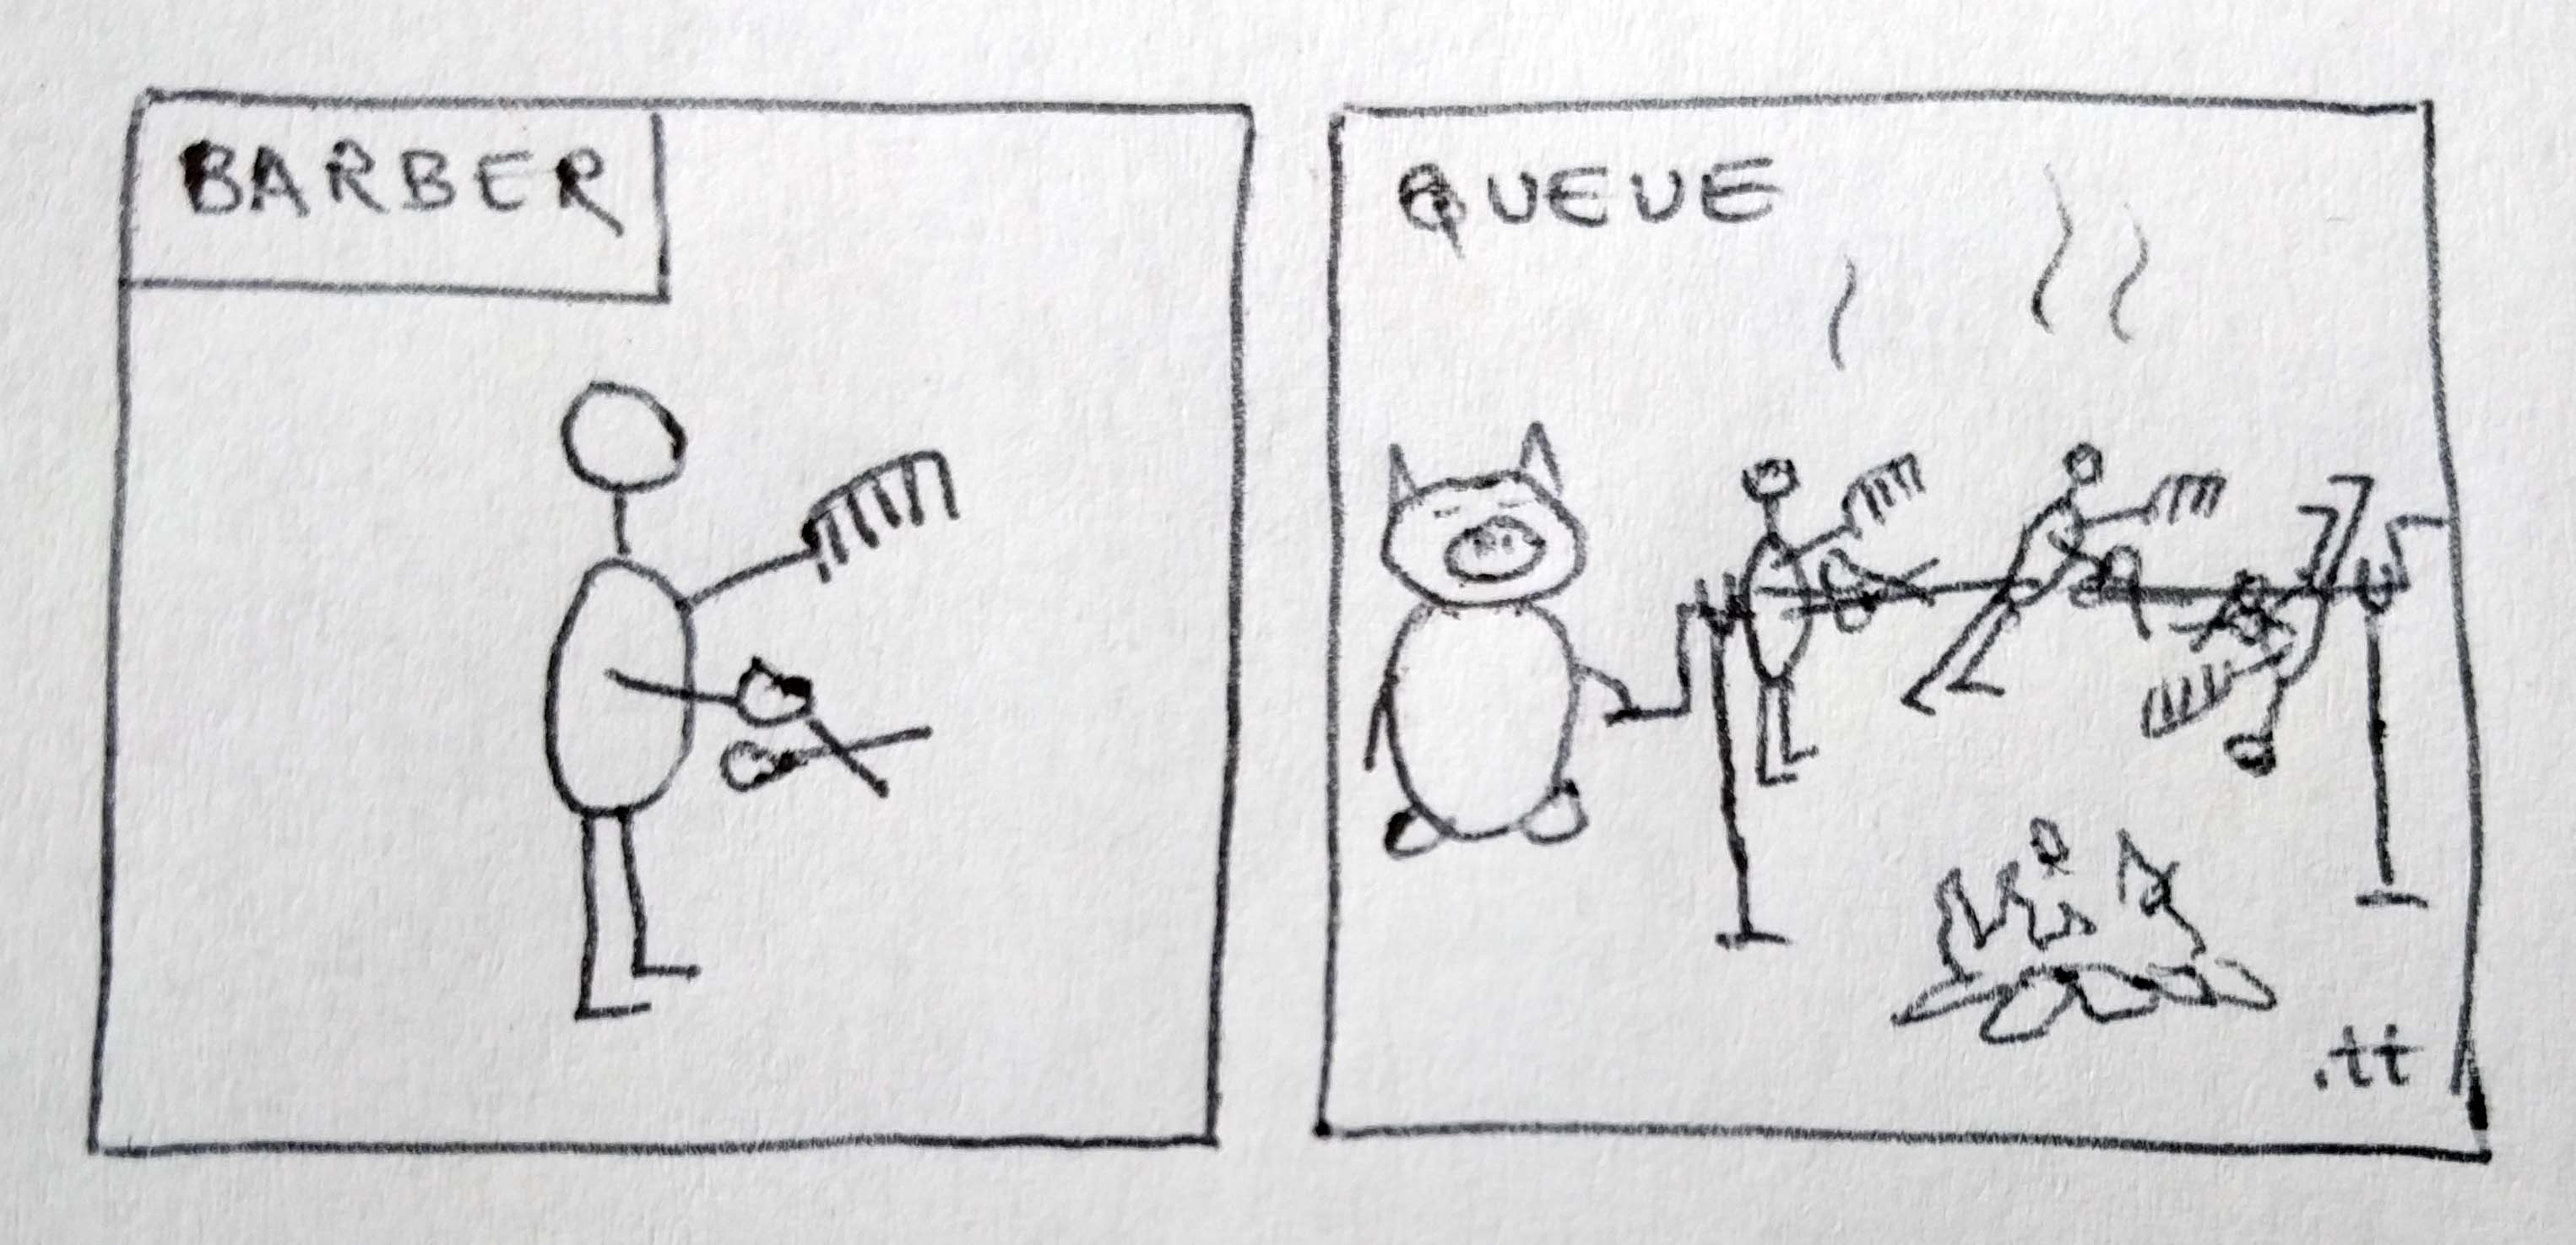 BARBER
QUEUE
.tt